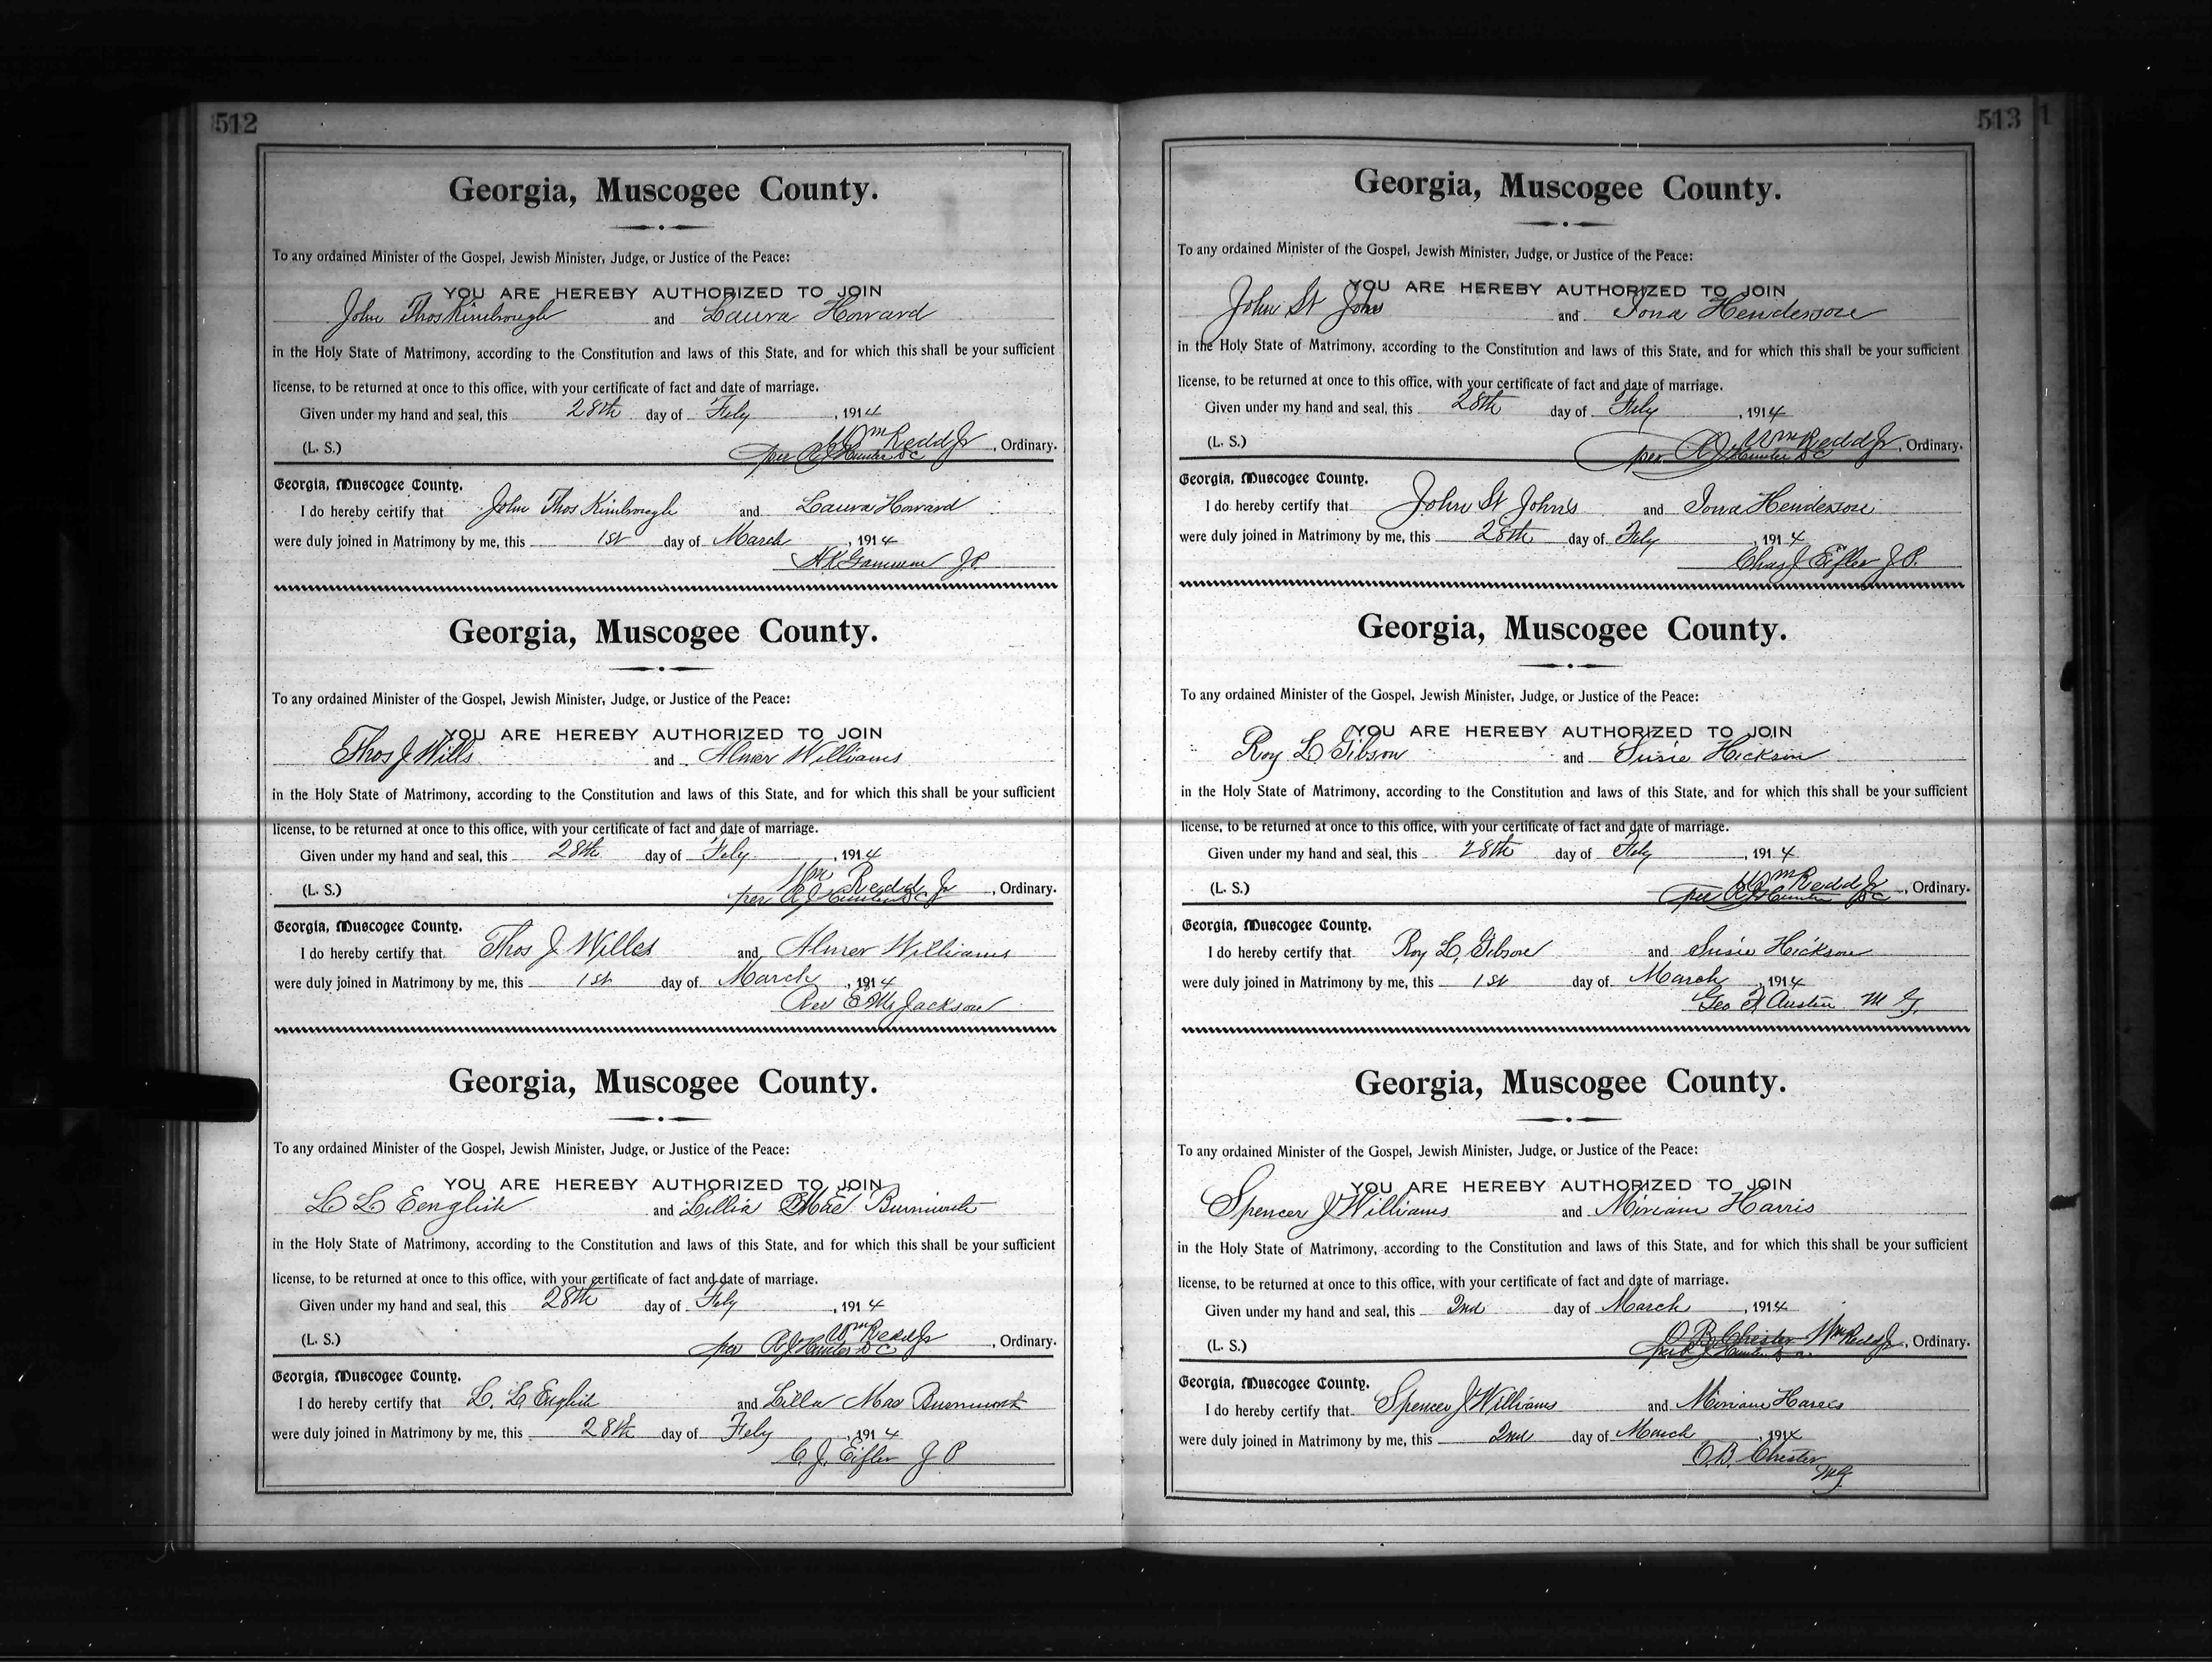 512
Georgia, Muscogee County.
To any ordained Minister of the Gospel, Jewish Minister, Judge, or Justice of the Peace:
YOU ARE HEREBY AUTHORIZED TO JOIN
John Thos Kimbrough and Laura Howard
in the Holy State of Matrimony, according to the Constitution and laws of this State, and for which this shall be your sufficient
license, to be returned at once to this office, with your certificate of fact and date of marriage.
Given under my hand and seal, this 28th day of Feby, 1914
Wm Redd Jr
(L. S.) per R J Hunter D C, Ordinary.
Georgia, Muscogee County.
I do hereby certify that John Thos Kimbrough and Laura Howard
were duly joined in Matrimony by me, this 1st day of March, 1914
J.P.
Georgia, Muscogee County.
To any ordained Minister of the Gospel, Jewish Minister, Judge, or Justice of the Peace:
YOU ARE HEREBY AUTHORIZED TO JOIN
Thos J Wills and Almer Williams
in the Holy State of Matrimony, according to the Constitution and laws of this State, and for which this shall be your sufficient
license, to be returned at once to this office, with your certificate of fact and date of marriage.
Given under my hand and seal, this 28th day of Feby, 1914
Wm Redd Jr
(L. S.) per R J Hunter D C, Ordinary.
Georgia, Muscogee County.
I do hereby certify that Thos J Willes and Almer Williams
were duly joined in Matrimony by me, this 1st day of March, 1914
Rev E M Jackson
Georgia, Muscogee County.
To any ordained Minister of the Gospel, Jewish Minister, Judge, or Justice of the Peace:
YOU ARE HEREBY AUTHORIZED TO JOIN
L L Eenglish and Lillia Mae
in the Holy State of Matrimony, according to the Constitution and laws of this State, and for which this shall be your sufficient
license, to be returned at once to this office, with your certificate of fact and date of marriage.
Given under my hand and seal, this 28th day of Feby, 1914
Wm Redd Jr
(L. S.) per R J Hunter D C, Ordinary.
Georgia, Muscogee County.
I do hereby certify that L. L English and Lilla Mae
were duly joined in Matrimony by me, this 28th day of Feby, 1914
C. J. Eifler J P
513 1
Georgia, Muscogee County.
To any ordained Minister of the Gospel, Jewish Minister, Judge, or Justice of the Peace:
YOU ARE HEREBY AUTHORIZED TO JOIN
John St John and Iona Henderson
in the Holy State of Matrimony, according to the Constitution and laws of this State, and for which this shall be your sufficient
license, to be returned at once to this office, with your certificate of fact and date of marriage.
Given under my hand and seal, this 28th day of Feby, 1914
Wm Redd Jr
(L. S.) per R J Hunter D C, Ordinary.
Georgia, Muscogee County.
I do hereby certify that John St Johns and Iona Henderson
were duly joined in Matrimony by me, this 28th day of Feby, 1914
Chas J Eifler J P.
Georgia, Muscogee County.
To any ordained Minister of the Gospel, Jewish Minister, Judge, or Justice of the Peace:
YOU ARE HEREBY AUTHORIZED TO JOIN
Roy L Gibson and Susie Hickson
in the Holy State of Matrimony, according to the Constitution and laws of this State, and for which this shall be your sufficient
license, to be returned at once to this office, with your certificate of fact and date of marriage.
Given under my hand and seal, this 28th day of Feby, 1914
Wm Redd Jr
(L. S.) per R J Hunter D C, Ordinary.
Georgia, Muscogee County.
I do hereby certify that Roy L, Gibson and Susie Hickson
were duly joined in Matrimony by me, this 1st day of March, 1914
Geo F Austin M G,
Georgia, Muscogee County.
To any ordained Minister of the Gospel, Jewish Minister, Judge, or Justice of the Peace:
YOU ARE HEREBY AUTHORIZED TO JOIN
Spencer J Williams and Miriam Harris
in the Holy State of Matrimony, according to the Constitution and laws of this State, and for which this shall be your sufficient
license, to be returned at once to this office, with your certificate of fact and date of marriage.
Given under my hand and seal, this 2nd day of March, 1914
O B Chester Wm Redd Jr
(L. S.) per R J Hunter, Ordinary.
Georgia, Muscogee County.
I do hereby certify that Spencer J Williams and Miriam Harris
were duly joined in Matrimony by me, this 2nd day of March, 1914
O. B. Chester
M G